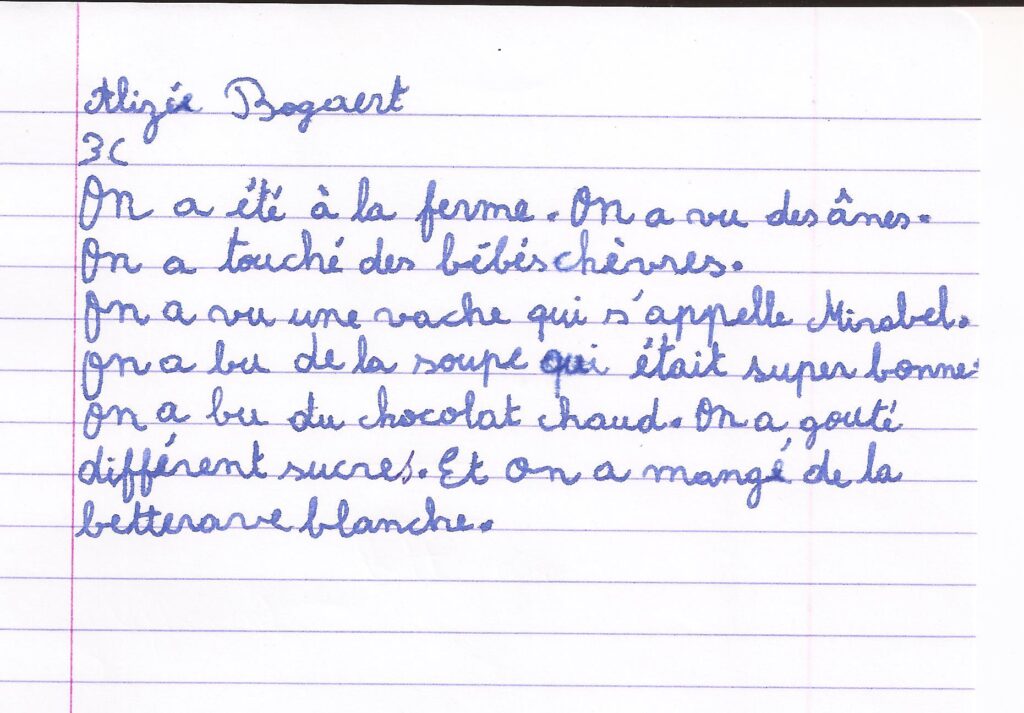 Alizée Bogaert
3C
On a été à la ferme. On a vu des ânes.
On a touché des bébés chèvres.
On a vu une vache qui s'appelle Mirabel.
On a bu de la soupe qui était super bonne.
On a bu du chocolat chaud. On a gouté
différent sucres. Et on a mangé de la
betterave blanche.